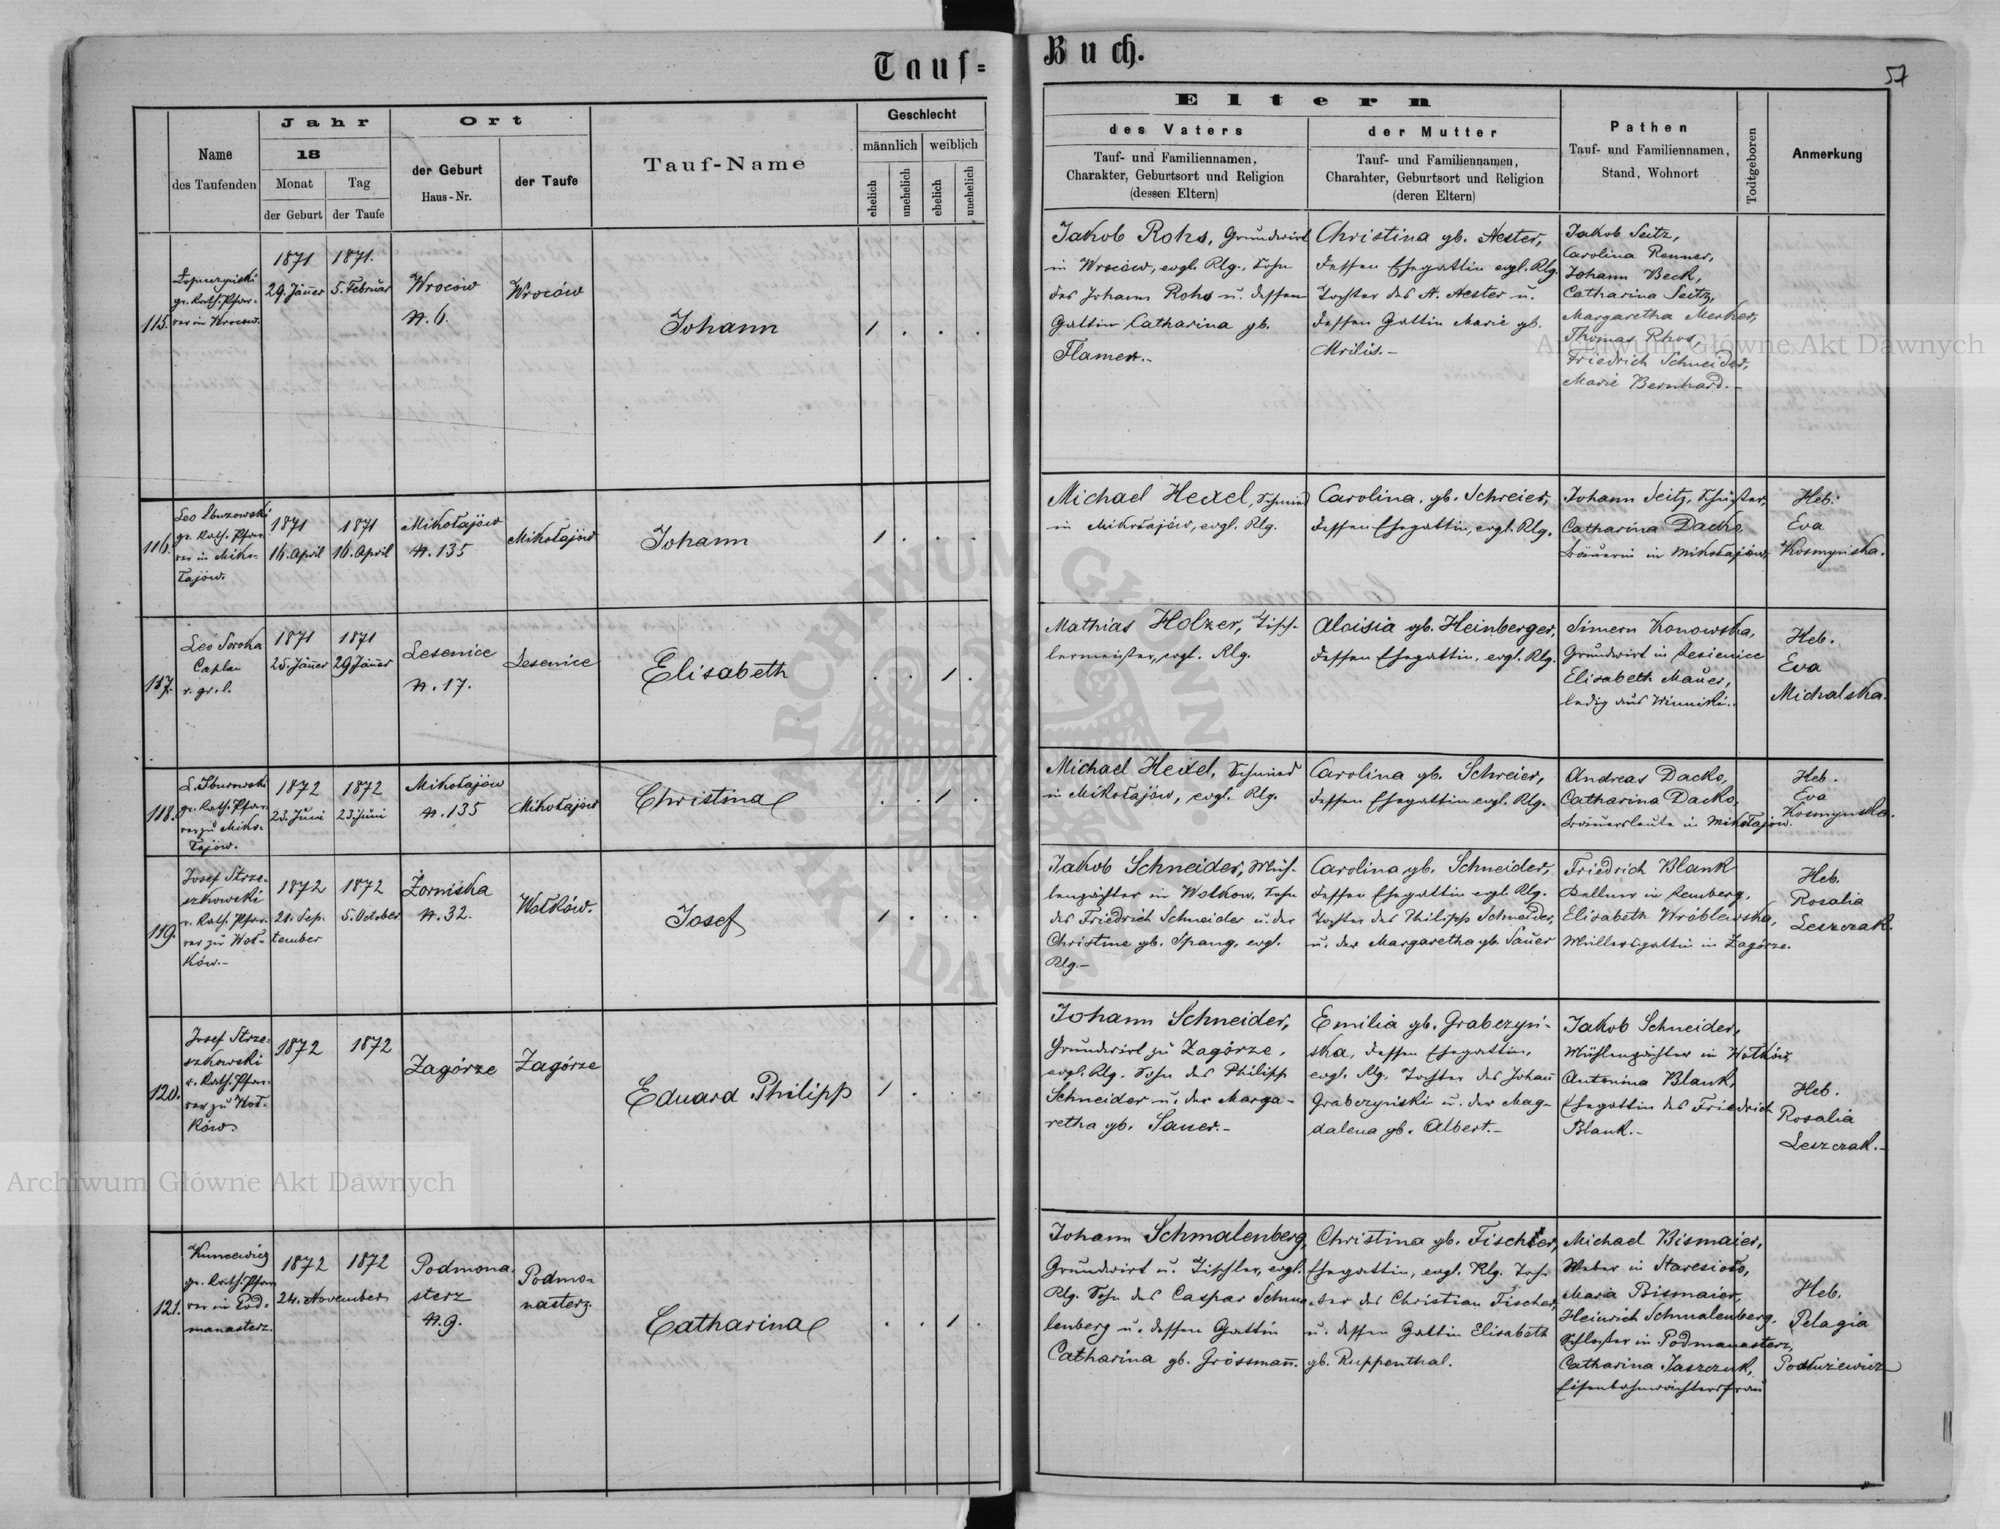 Tauf=
Buch.
57
Name
des Taufenden
Jahr
18
Monat
der Geburt
Tag
der Taufe
Ort
der Geburt
Haus-Nr.
der Taufe
Tauf-Name
Geschlecht
männlich
weiblich
ehelich
unehelich
ehelich
unehelich
Eltern
des Vaters
Tauf- und Familiennamen,
Charakter, Geburtsort und Religion
(dessen Eltern)
der Mutter
Tauf- und Familiennamen,
Charahter, Geburtsort und Religion
(deren Eltern)
Pathen
Tauf- und Familiennamen,
Stand, Wohnort
Todtgeboren
Anmerkung
115.
gr. Kath. Pfar-
rer in Wrocow.
1871
29. Jänner
1871.
5. Februar
Wroców
N. 6.
Wroców
Johann
1 . . .
Jakob Rohs, Grundwirt
in Wroców, evgl. Rlg., Sohn
des Johann Rohs u. dessen
Gattin Catharina gb.
Flamen.-
Christina gb. Nester,
dessen Ehegattin evgl. Rlg.
Tochter des N. Nester u.
dessen Gattin Marie gb.
Jakob Seitz,
Carolina Renner,
Johann Beck,
Catharina Seitz,
Margaretha Merker,
Thomas Rhos,
Friedrich Schneider,
Marie Bernhard.-
116.
Leo
gr. Kath. Pfar-
rer in Miko-
łajów.
1871
16. April
1871
16. April
Mikołajów
N. 135
Mikołajów
Johann
1 . . .
Michael Hexel, Schmied
in Mikołajów, evgl. Rlg.
Carolina, gb. Schreier,
dessen Ehegattin, evgl. Rlg.
Johann Seitz,
Catharina Dacko,
Bäuerin in Mikołajów
Heb.
Eva
Kosmyńska.
117.
Leo Soroka
Caplan
r. gr. l.
1871
25. Jänner
1871
29 Jänner
Lesenice
N. 17.
Lesenice
Elisabeth
. . 1 .
Mathias Holzer, Tisch-
lermeister, evgl. Rlg.
Aloisia gb. Heinberger,
dessen Ehegattin, evgl. Rlg.
Simeon Konowska,
Grundwirt in Lesienice
Elisabeth Mauer,
ledig aus Winniki.
Heb.
Eva
Michalska.
118.
gr. Kath. Pfar-
rer zu Miko-
łajów.
1872
23. Juni
1872
23. Juni
Mikołajów
N. 135
Mikołajów
Christina
. . 1 .
Michael Hexel, Schmied
in Mikołajów, evgl. Rlg.
Carolina gb. Schreier,
dessen Ehegattin evgl. Rlg.
Andreas Dacko,
Catharina Dacko,
Bauersleute in Mikołajow.
Heb.
Eva
Kosmynska.
119.
Josef Strze-
szkowski
r. Kath. Pfar-
rer zu Woł-
ków.-
1872
21. Sep-
tember
1872
5. October
Żorniska
N. 32.
Wołków.
Josef
1 . . .
Jakob Schneider, Müh-
lenpächter in Wolkow, Sohn
des Friedrich Schneider u. der
Christine gb. Spang, evgl.
Rlg.-
Carolina gb. Schneider,
dessen Ehegattin evgl. Rlg.
Tochter des Philipp Schneider,
u. der Margaretha gb. Sauer
Friedrich Blank
Kellner in Lemberg,
Elisabeth Wróblewska,
Müllersgattin in Zagórze.
Heb.
Rosalia
Leszczak.
120.
Josef Strze-
szkowski
r. Kath. Pfar-
rer zu Woł-
ków.
1872
1872
Zagórze
Zagórze
Eduard Philipp
1 . . .
Johann Schneider,
Grundwirt zu Zagórze,
evgl. Rlg. Sohn des Philipp
Schneider u. der Marga-
retha gb. Sauer.-
Emilia gb. Grabczyń-
ska, dessen Ehegattin,
evgl. Rlg. Tochter des Johann
Grabczyński u. der Mag-
dalena gb. Albert.-
Jakob Schneider,
Mühlenpächter in Wołków,
Antonina Blank,
Ehegattin des Friedrich
Blank.-
Heb.
Rosalia
Leszczak.-
121.
Kuncewicz
gr. Kath. Pfar
rer in Pod-
manasterz.
1872
24. November
1872
Podmona-
sterz
N. 9.
Podmo-
nasterz.
Catharina
. . 1 .
Johann Schmalenberg,
Grundwirt u. Tischler, evgl.
Rlg. Sohn des Caspar Schma-
lenberg u. dessen Gattin
Catharina gb. Grossmann.
Christina gb. Fischer,
Ehegattin, evgl. Rlg. Toch-
ter des Christian Fischer,
u. dessen Gattin Elisabeth
gb. Ruppenthal.
Michael Bismaier,
Weber in
Maria Bismaier,
Heinrich Schmalenberg,
Schlosser in Podmanasterz,
Catharina Jaszczuk,
Eisenbahnwächtersfrau
Heb.
Pelagia
Archiwum Główne Akt Dawnych
Archiwum Główne Akt Dawnych
ARCHIWUM GŁÓWNE AKT DAWNYCH